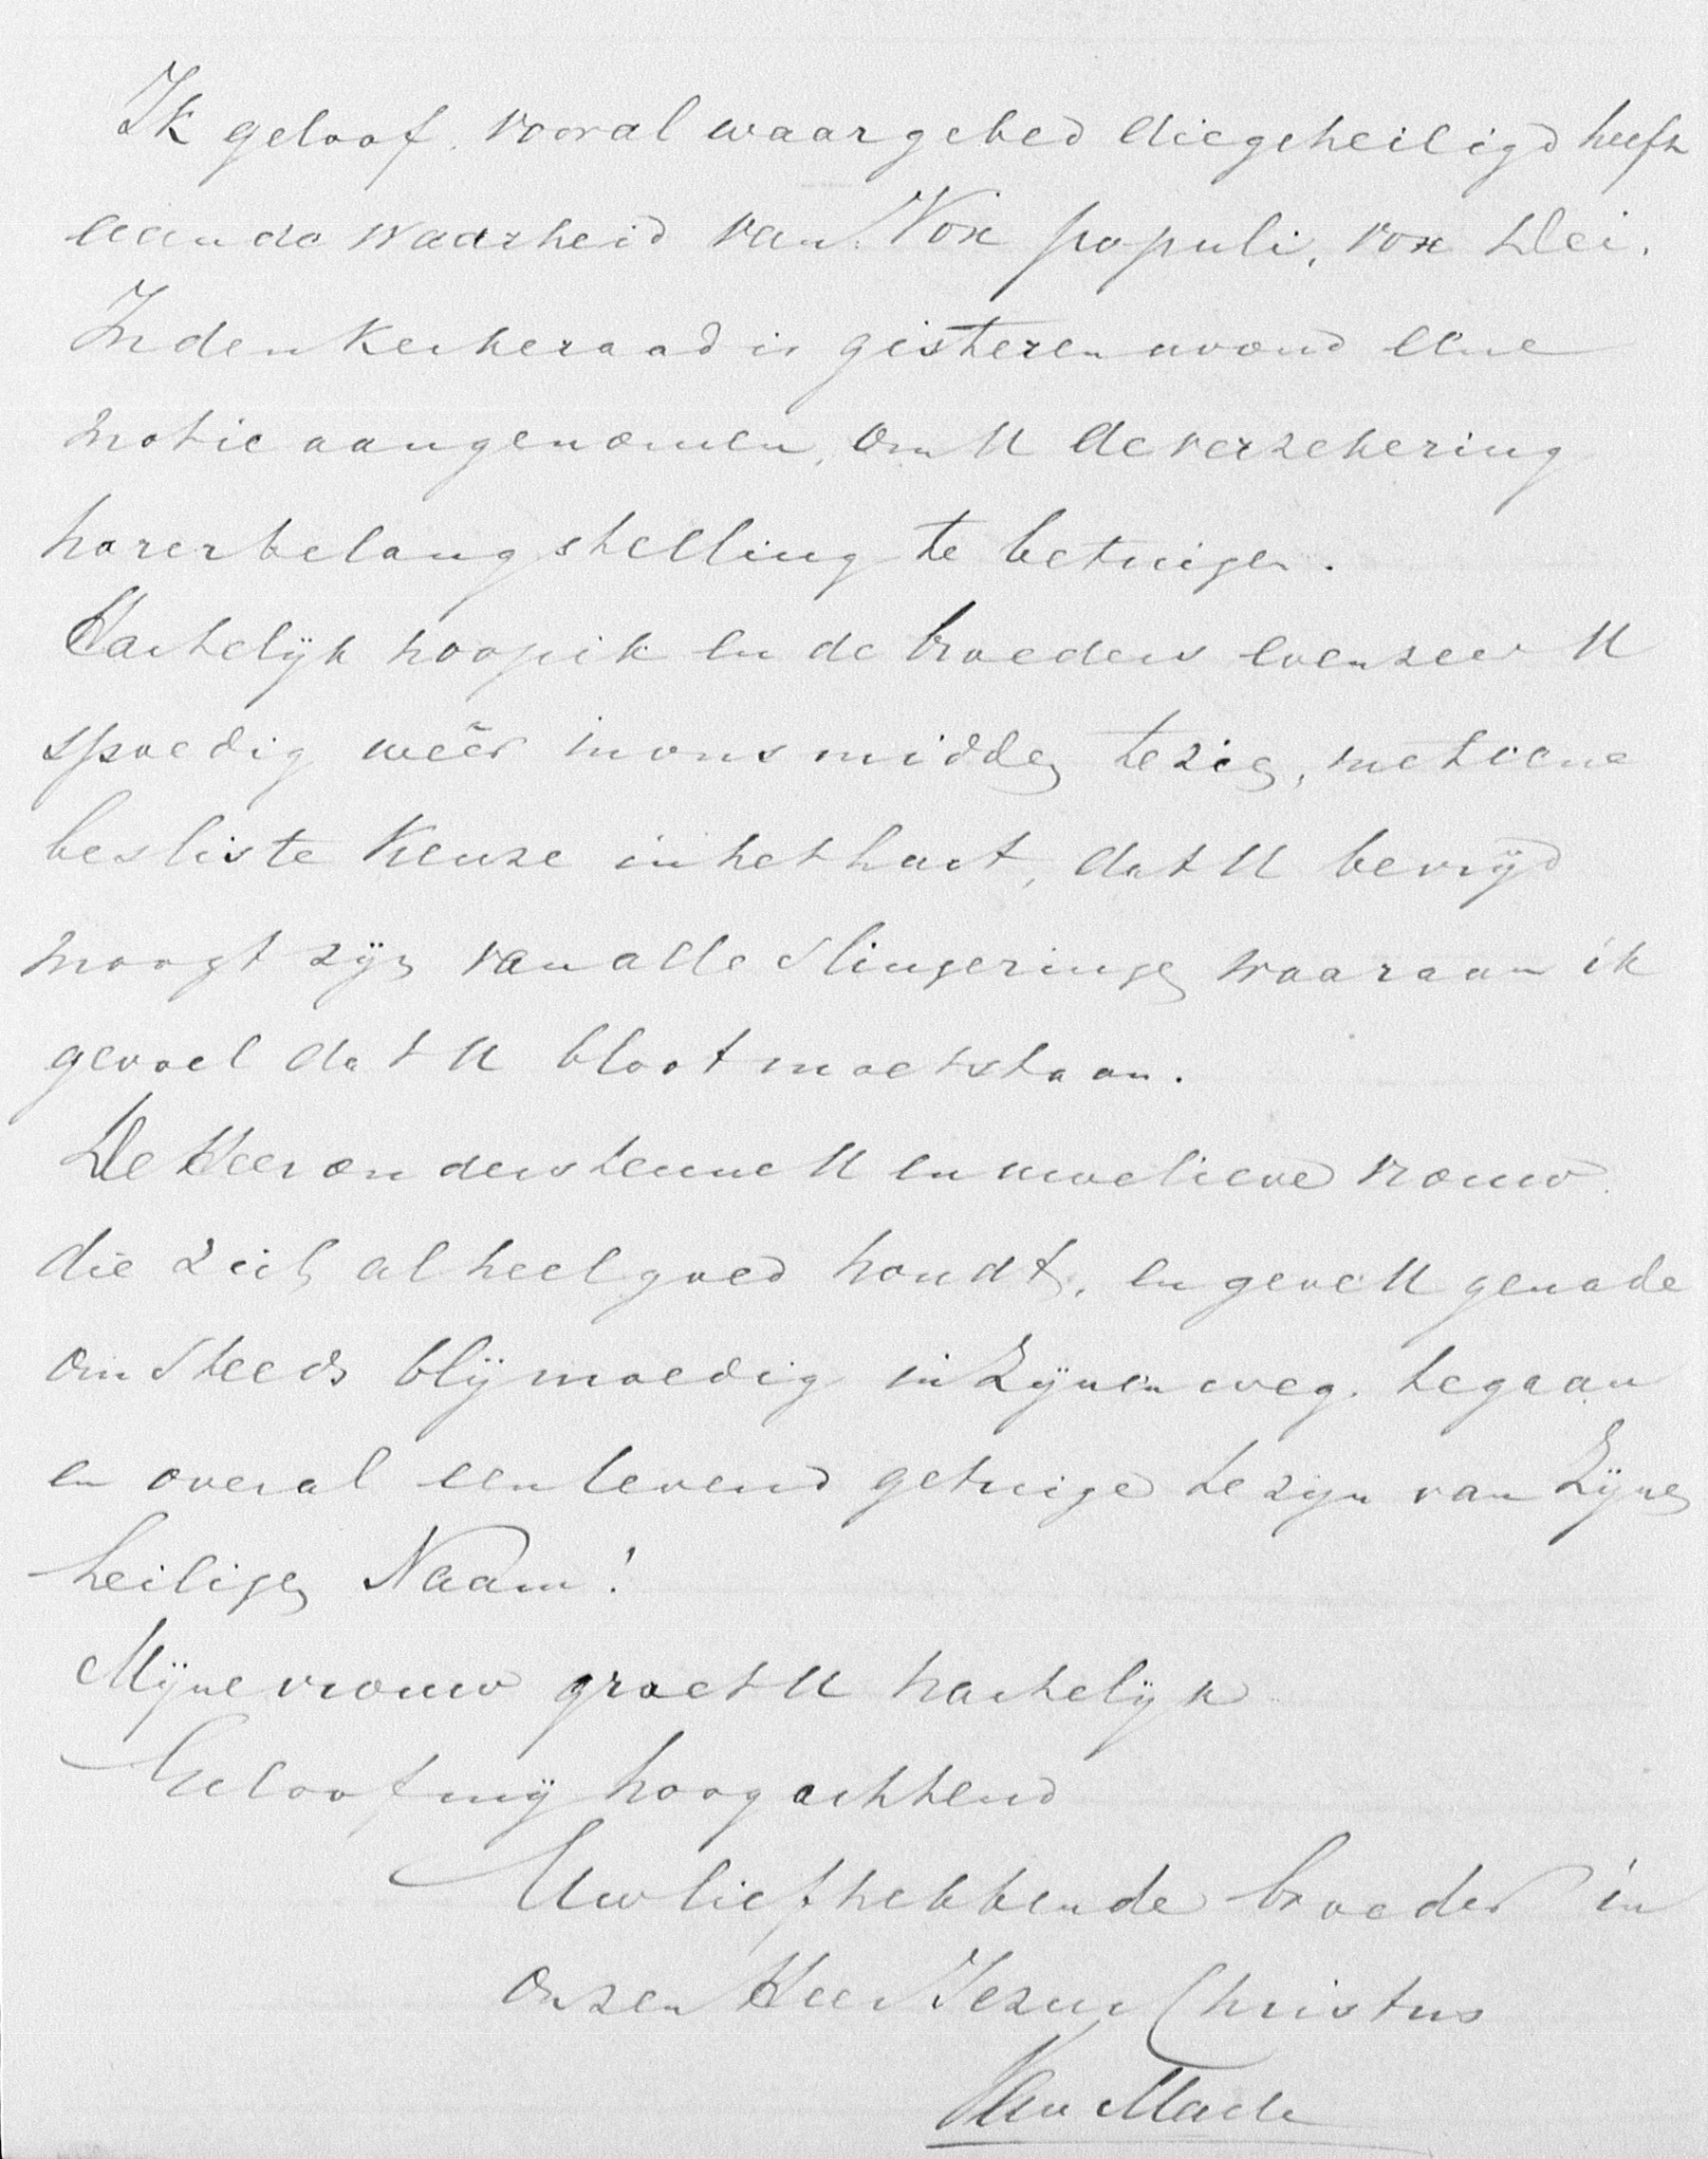 Ik geloof, vooral waar gebed die geheiligd heeft
aan de waarheid van: Vox populi, vox Dei.
In den Kerkeraad is gisteren avond eene
motie aangenomen, om U de verzekering
harer belangstelling te betuigen.
Hartelijk hoop ik en de broeders evenzeer U
spoedig weêr in ons midden te zien, met eene
besliste Keuze in het hart, dat U bevrijd
moogt zijn van alle slingeringen waaraan ik
gevoel dat U bloot moet staan.
De Heer ondersteune U en uwe lieve vrouw
die zich al heel goed houdt, en geve U genade
om steeds blijmoedig in Zijnen weg te gaan
en overal een levend getuige te zijn van Zijnen
heiligen Naam!
Mijne vrouw groet U hartelijk
Geloof mij hoogachtend
Uw liefhebbende broeder in
onzen Heer Jezus Christus